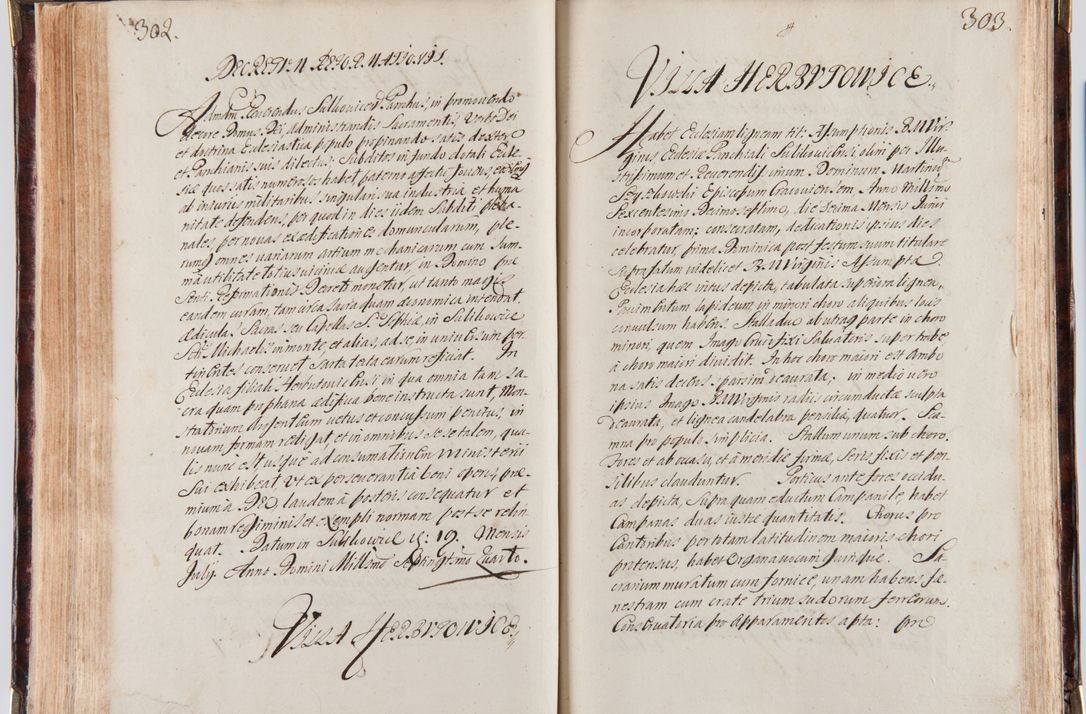 302.
DECRETUM REFORMATIONIS.
Admodum Reverendus Sulkovicen: Parochus, in promovendo
decore Domus Dei, administrandis Sacramentis, Verbo Dei
et doctrina Ecclesiastica populo propinando satis dexter
et Parochianis suis dilectus; Subditos in fundo dotali Eccle-
siæ quos satis numerosos habet paterno affectu fovens, eosque
ab iniuriis militaribus, singulari sua industria et huma
nitate defendens, per quod in dies iidem Subditi pleba-
nales per novas exædificationes domuncularum, ple-
rumque omnes variarum artium mechanicarum cum Sum-
mâ utilitate totius viciniæ augentur, in Domino præ
senti Reformationis Decreto monetur, ut tanto magis
eandem curam, tam circa sacra quam œconomica intendat.
Ædicula Sacras seu Capellas S. Sophiæ, in Sulkowice
Scti Michaelis in monte et alias, ad se in univer sum per-
tinentes conservet Sarta tecta earum reficiat. In
Ecclesia filiali Herbutovicensi in qua omnia tam sa-
cra quam prophana ædificia bene instructa sunt, Mon-
stratorium Argenteum vetus et concussum penitus, in
novam formam redigat et in omnibus se se talem, qua-
lis nunc est usque ad consumationem Ministerii
Sui exhibeat ut ex perseverantia boni operis, præ-
mium à DEO, laudem à posteris consequatur et
bonam regiminis et exempli normam post se relin
quat. Datum in Sulkowice 19. Mensis
July. Anno Domini Millesimo Septingentesimo Quarto.
VILLA HERBUTOWICE.
303.
VILLA HERBUTOWICE.
Habet Ecclesiam ligneam tit: Assumptionis B. M Vir-
ginis, Ecclesiæ Parochiali Sulkovicensi, olim per Illu-
strissimum et Reverendissimum Dominum Martinum
Szyszkowski Episcopum Cracoviensem Anno Millesimo
Sexcentesimo Decimo septimo, die decima Mensis Junii
incorporatam; consecratam, dedicationis ipsius dies
celebratur prima Dominica post festum suum titulare
supra fatum videlicet B. M Virginis Assumptæ.
Ecclesia hæc intus depicta, tabulata superiora lignea,
Pavimentum lapideum in minori choro aliquibus locis
convulsum habens. Stalla duo ab utraque parte in choro
minori, quem Imago Crucifixi Salvatoris super trabe
à choro maiori dividit. In hoc choro maiori est Ambo
na satis decens sparsim deaurata; in medio vero
ipsius Imago B. M Virginis radiis circumducta sculpta
deaurata, et lignea candelabra pensilia, quatuor. Sca-
mna pro populo simplicia. Stallum unum sub choro.
Fores et ab occasu, et à meridie firmæ, Seris fixis et pen-
silibus clauduntur. Porticus ante fores occidu-
as depicta, Supra quam eductum Campanile, habet
Campanas duas iustæ quantitatis. Chorus pro
Cantoribus per totam latitudinem maioris chori
protensus, habet Organa vocum quinque. Sa-
crarium muratum cum fornice, unam habens fe-
nestram cum crate trium sudorum ferreorum.
Conservatoria pro apparamentis apta: præ